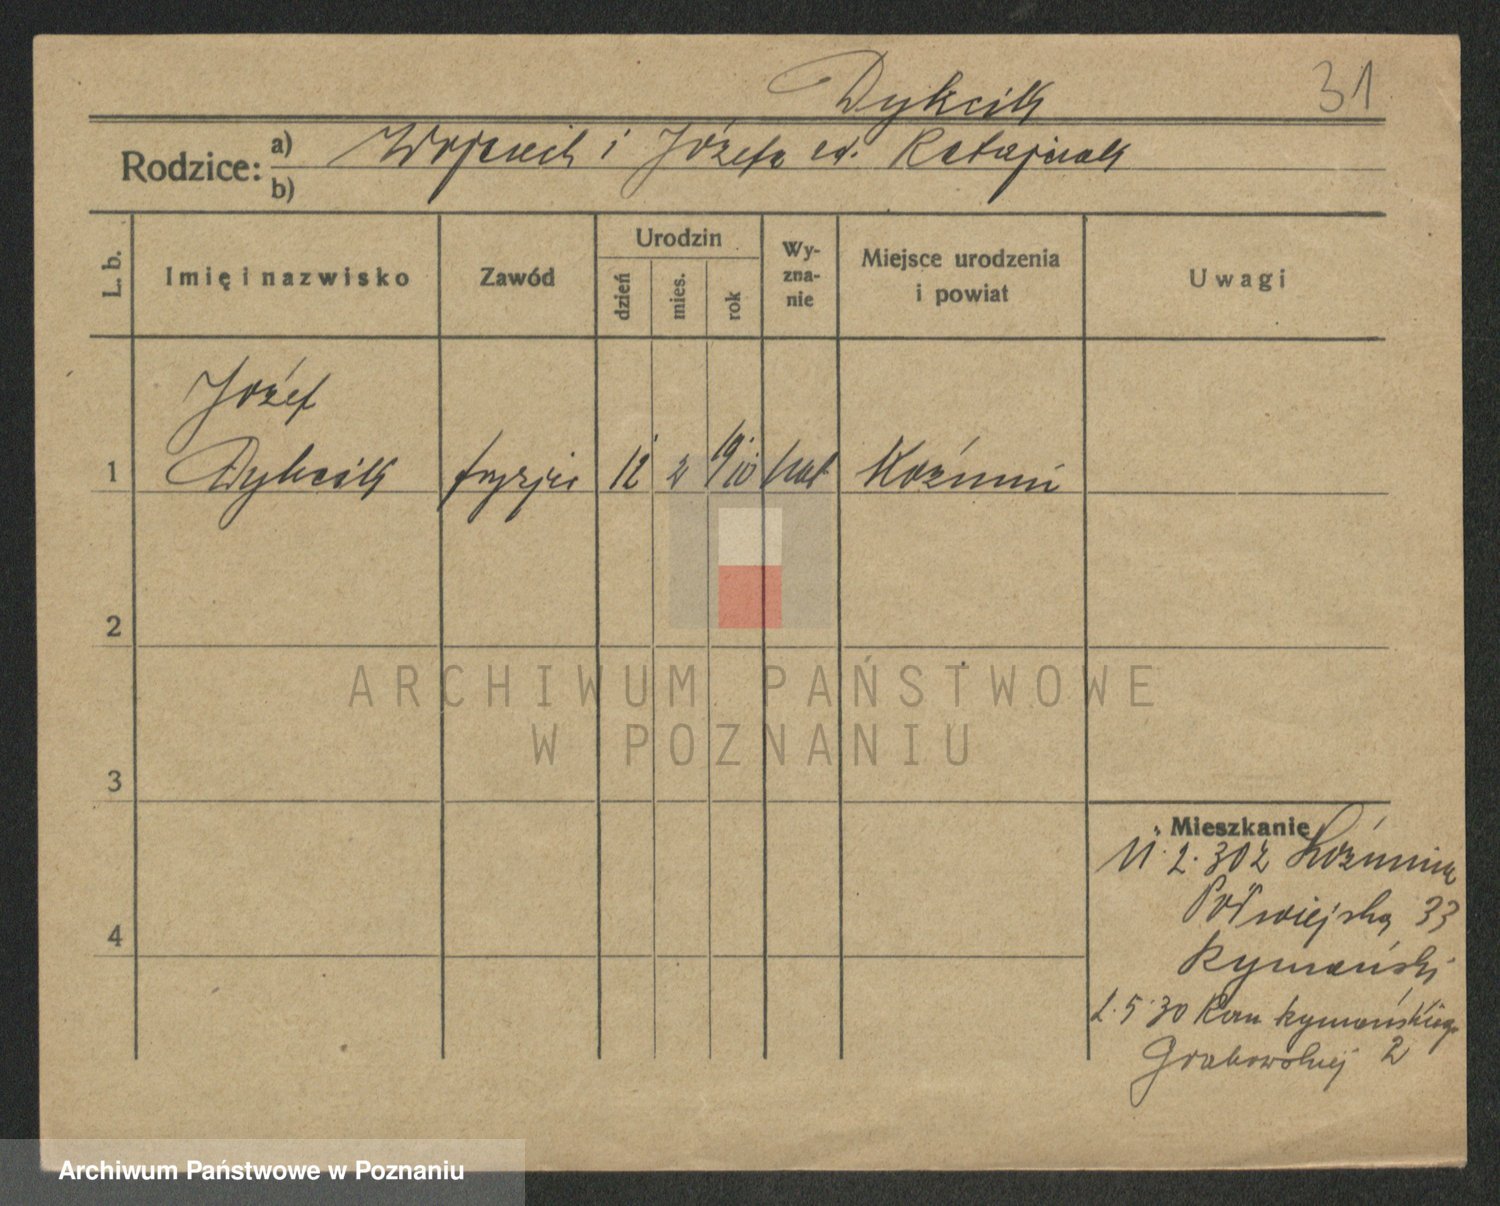 Dykcik 31
Rodzice: a) Wojciech i Józefa z d. Ratajczak
b)
L. b. Imię i nazwisko Zawód Urodzin dzień mies. rok Wy-zna-nie Miejsce urodzenia i powiat Uwagi
Józef
1 Dykcik fryzjer 12 2 1910 kat Koźmin
2
3
Mieszkanie
11. 2. 30 z Koźmina
4
33
Rymański
2. 5. 30 Rymańskiego
2
ARCHIWUM PAŃSTWOWE
W POZNANIU
Archiwum Państwowe w Poznaniu